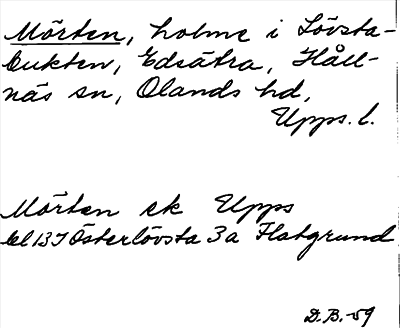 Mörten, holme i Lövsta-
bukten, Edsätra, Håll-
näs sn, Olands hd,
Upps. l.
Mörten ek Upps
bl 137 Österlövsta 3a Flatgrund
D.B.-59